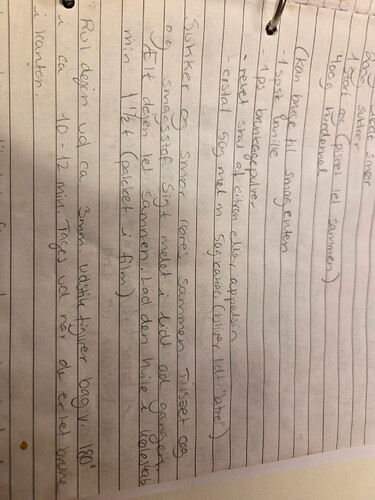 200g blødt smør
150g sukker
1 stort æg (pisket let sammen)
400g hvedemel
(kan bruge til smagenten
- 1 spsk vanille
- 1 ps brunkagepulver
- revet skal af citron eller appelsin
- erstat 50g mel m 50g kakao (bliver lidt "bitre")
Sukker og smør røres sammen. Tilsæt æg
og smagsstof. Sigt melet i lidt ad gangen.
Ælt dejen let sammen. Lad den hvile i køleskab
min 1 1/2 t (pakket i film)
Rul dejen ud ca 3mm udstik figurer bag v. 180°
i ca 10-12 min. Tages ud når de er let brune
i kanten.